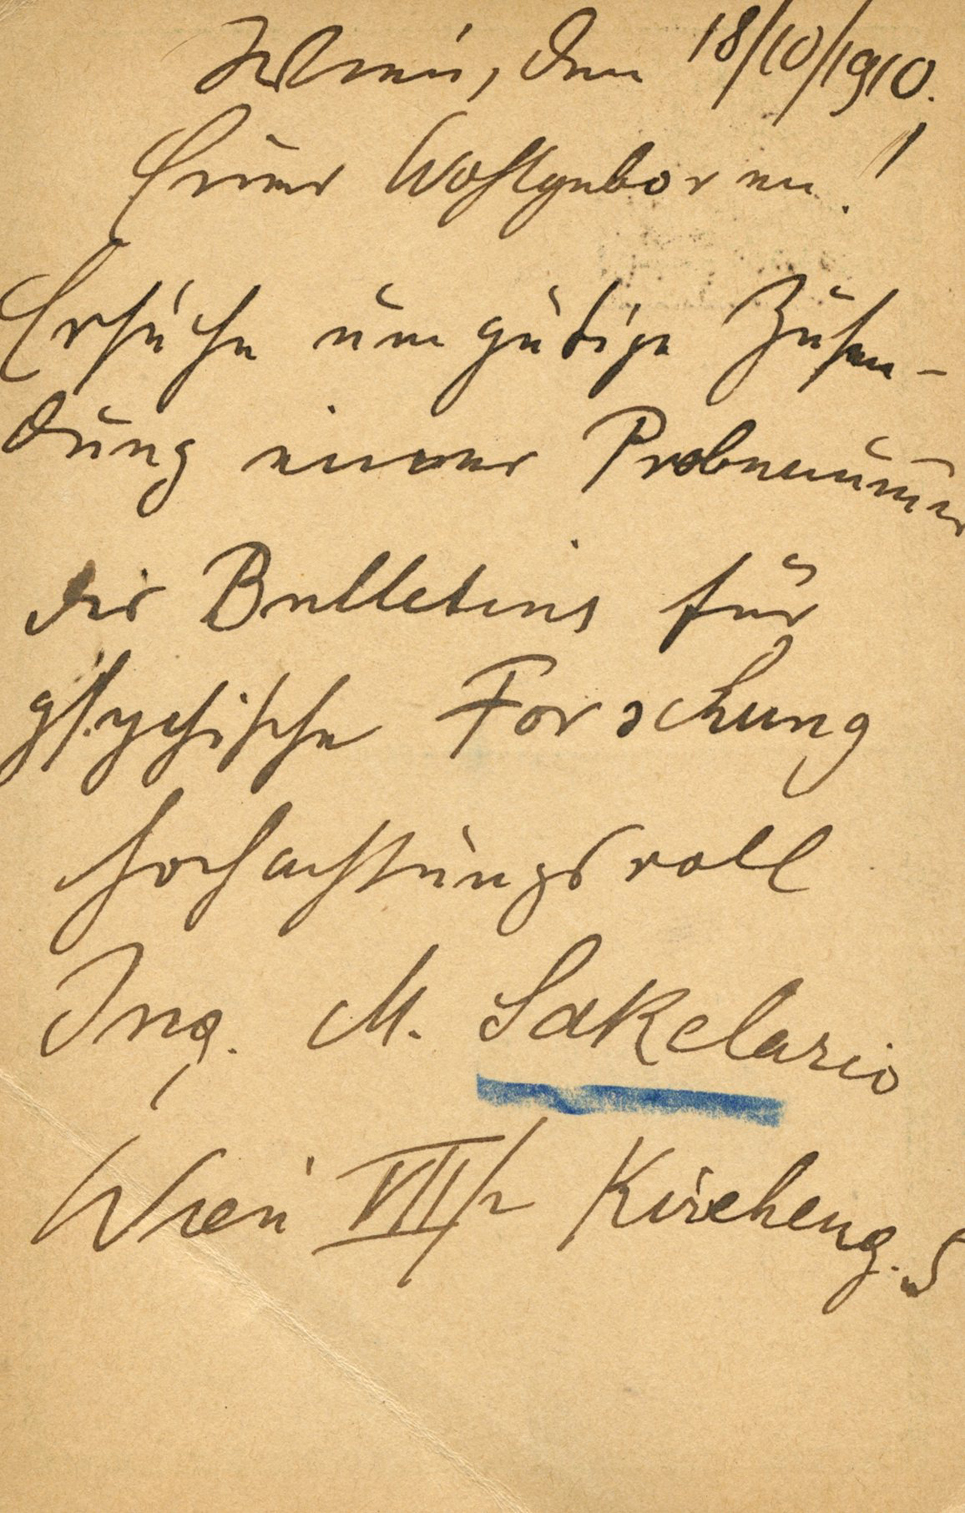 Wien, den 18/10/1910.
Euer Wohlgeboren!
Ersuche um gütige Zusen-
dung einer Probenummer
des Bulletins für
psychische Forschung
hochachtungsvoll
Ing. M. Sakelario
Wien VII/2 Kircheng. 5